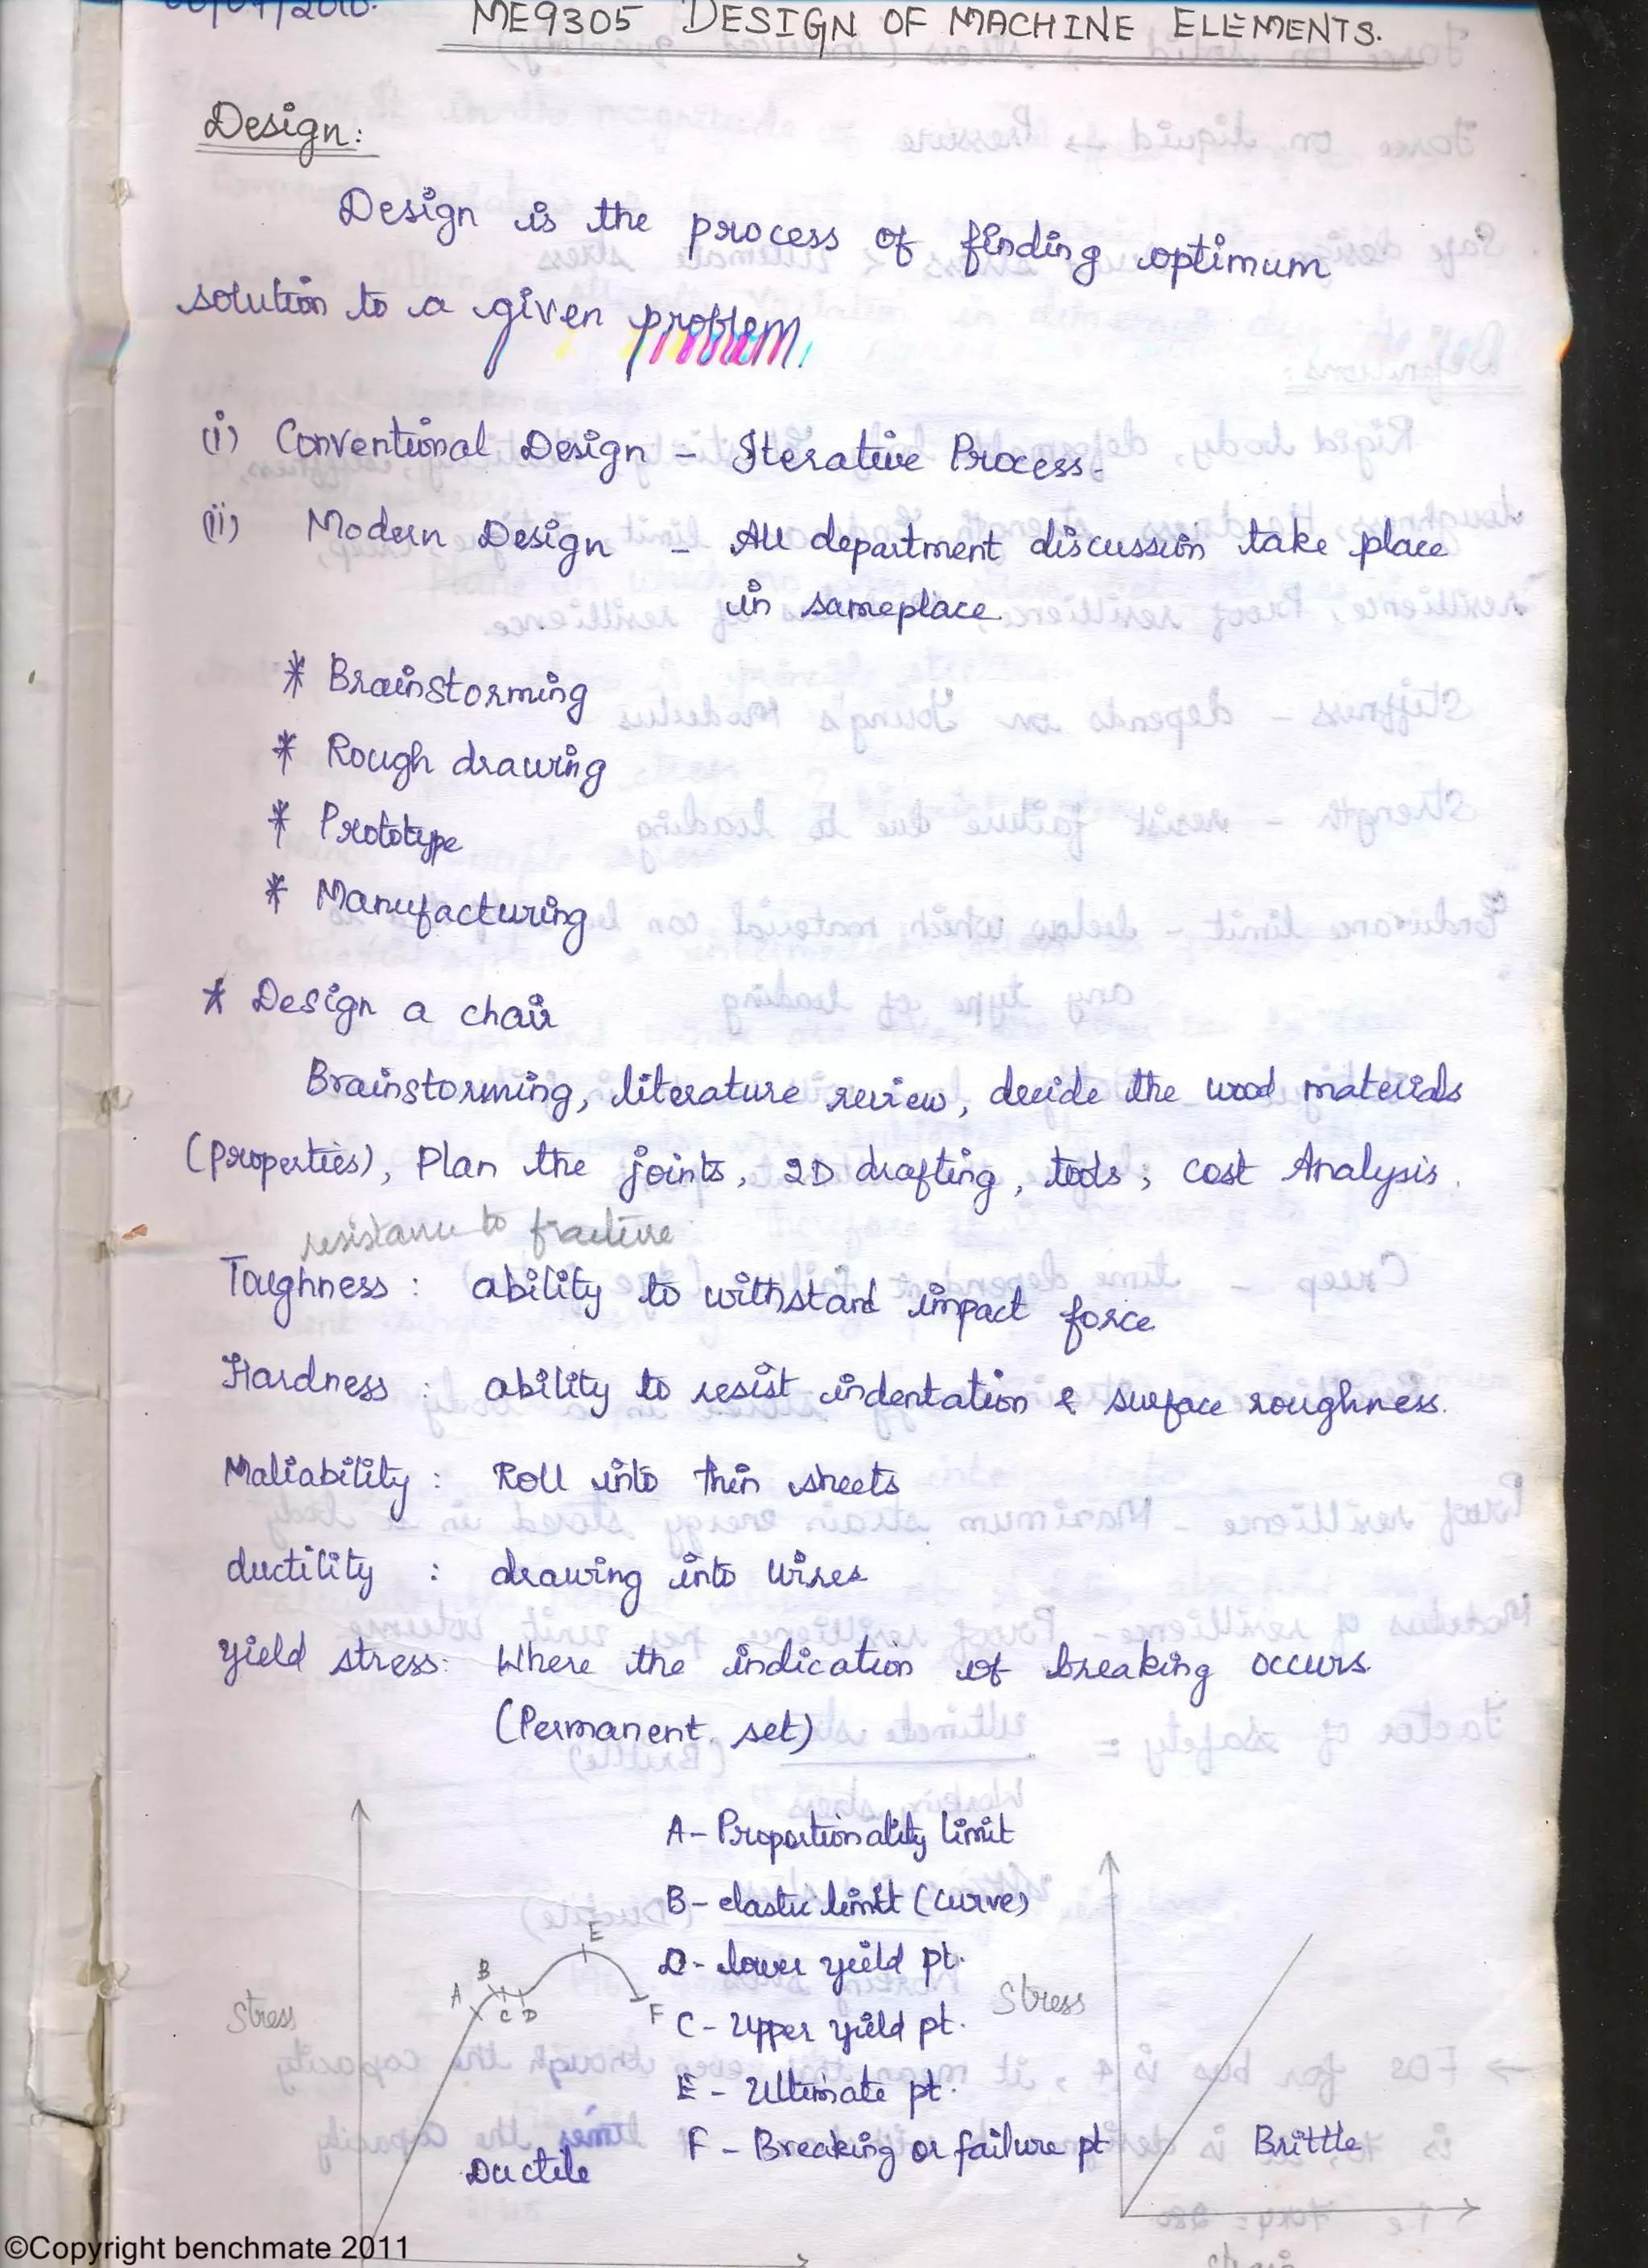 /2010.
ME9305 DESIGN OF MACHINE ELEMENTS.
Design:
Design is the process of finding optimum
solution to a given problem.
(i) Conventional Design - Iterative Process.
(ii) Modern Design - All department discussion take place
in sameplace.
* Brainstorming
* Rough drawing
* Prototype
* Manufacturing
* Design a chair
Brainstorming, literature review, decide the wood materials
(properties), Plan the joints, 2D drafting, tools, cost Analysis.
resistance to fracture
Toughness: ability to withstand impact force
Hardness: ability to resist indentation & surface roughness.
Maliability: Roll into thin sheets
ductility: drawing into wires
Yield stress: Where the indication of breaking occurs.
(Permanent set)
A- Proportionality limit
B- elastic limit (curve)
D- lower yield pt.
C- Upper yield pt.
E- Ultimate pt.
F- Breaking or failure pt
Stress
A
B
C
D
E
F
Ductile
Stress
Brittle
©Copyright benchmate 2011